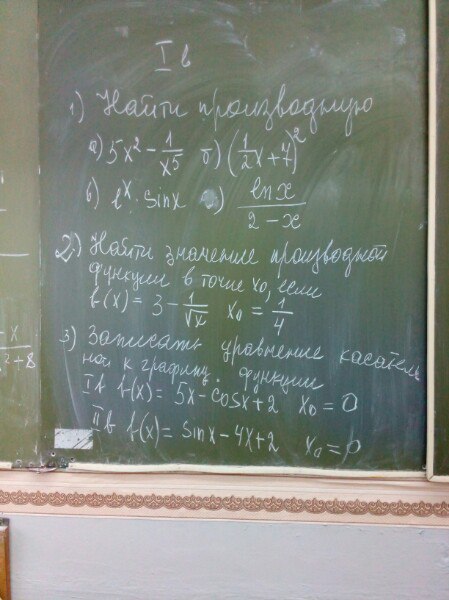 I в
1) Найти производную
а) 5x² - 1/x⁵ б) (1/2x + 7)²
в) eˣ · sinx г) lnx / 2 - x
2) Найти значение производной
функции в точке x₀, если
f(x) = 3 - 1/√x x₀ = 1/4
3) Записать уравнение касатель
ной к графику функции
I в f(x) = 5x - cosx + 2 x₀ = 0
II в f(x) = sinx - 4x + 2 x₀ =